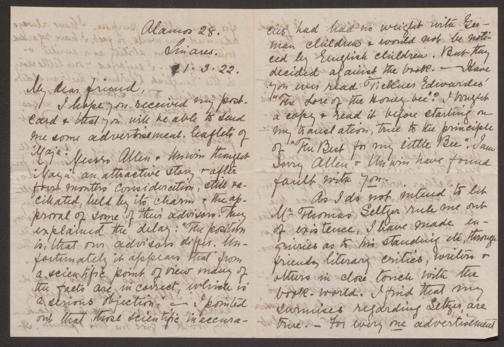 Alamos 28.
Linares.
21-3-22.
My dear friend,
I hope you received my post-
card & that you will be able to send
me some advertisement leaflets of
Maja. Messrs Allen & Unwin thought
"Maya" an attractive story & after
four months consideration, still va-
cillated, held by its charm & the ap-
proval of some of their advisers. They
explained the delay: "The position
is, that our advisers differ. Un-
fortunately it appears that from
a scientific point of view many of
the facts are incorrect, which is
a serious objection." — I pointed
out that those scientific inaccura-
cies had had no weight with Ger-
man children & would not be noti-
ced by English children. But they
decided against the book. — Have
you ever read Tickner Edwardes'
"The Lore of the Honey bee?" I bought
a copy & read it before starting on
my translation, true to the principle
of "The Best for my little Bee". I am
sorry Allen & Unwin have found
fault with you.
As I do not intend to let
Mr Thomas Seltzer rule me out
of existence, I have made en-
quiries as to his standing etc, through
friends, literary critics, writers &
others in close touch with the
book-world. I find that my
surmises regarding Seltzer are
true. — For every one advertisement